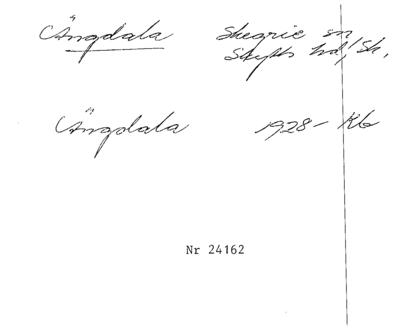 Ängdala Skegrie sn,
Skytts hd, Sk.
Ängdala 1928- Kb
Nr 24162